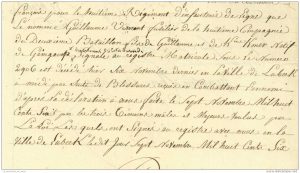 française pour le huitième Régiment d'infanterie de ligne que
le nommé Guillaume Vincent fusilier de la huitième Compagnie
de Deuxième Bataillon fils de Guillaume et de Natif
de signalé au registre Matricule sous le Numéro
2906 est Décédé hier six Novembre dernier en la Ville de Lubeck
midi par suite de Blessures reçues en Combattant l'ennemi
d'après la déclaration à nous faite le Sept Novembre Mil huit
Cents Six par les trois Témoins mâles et Majeurs voulus par
La Loi Lesquels ont Signés au registre avec nous en la
Ville de Lubeck ledit Jour Sept Novembre Mil huit Cents Six